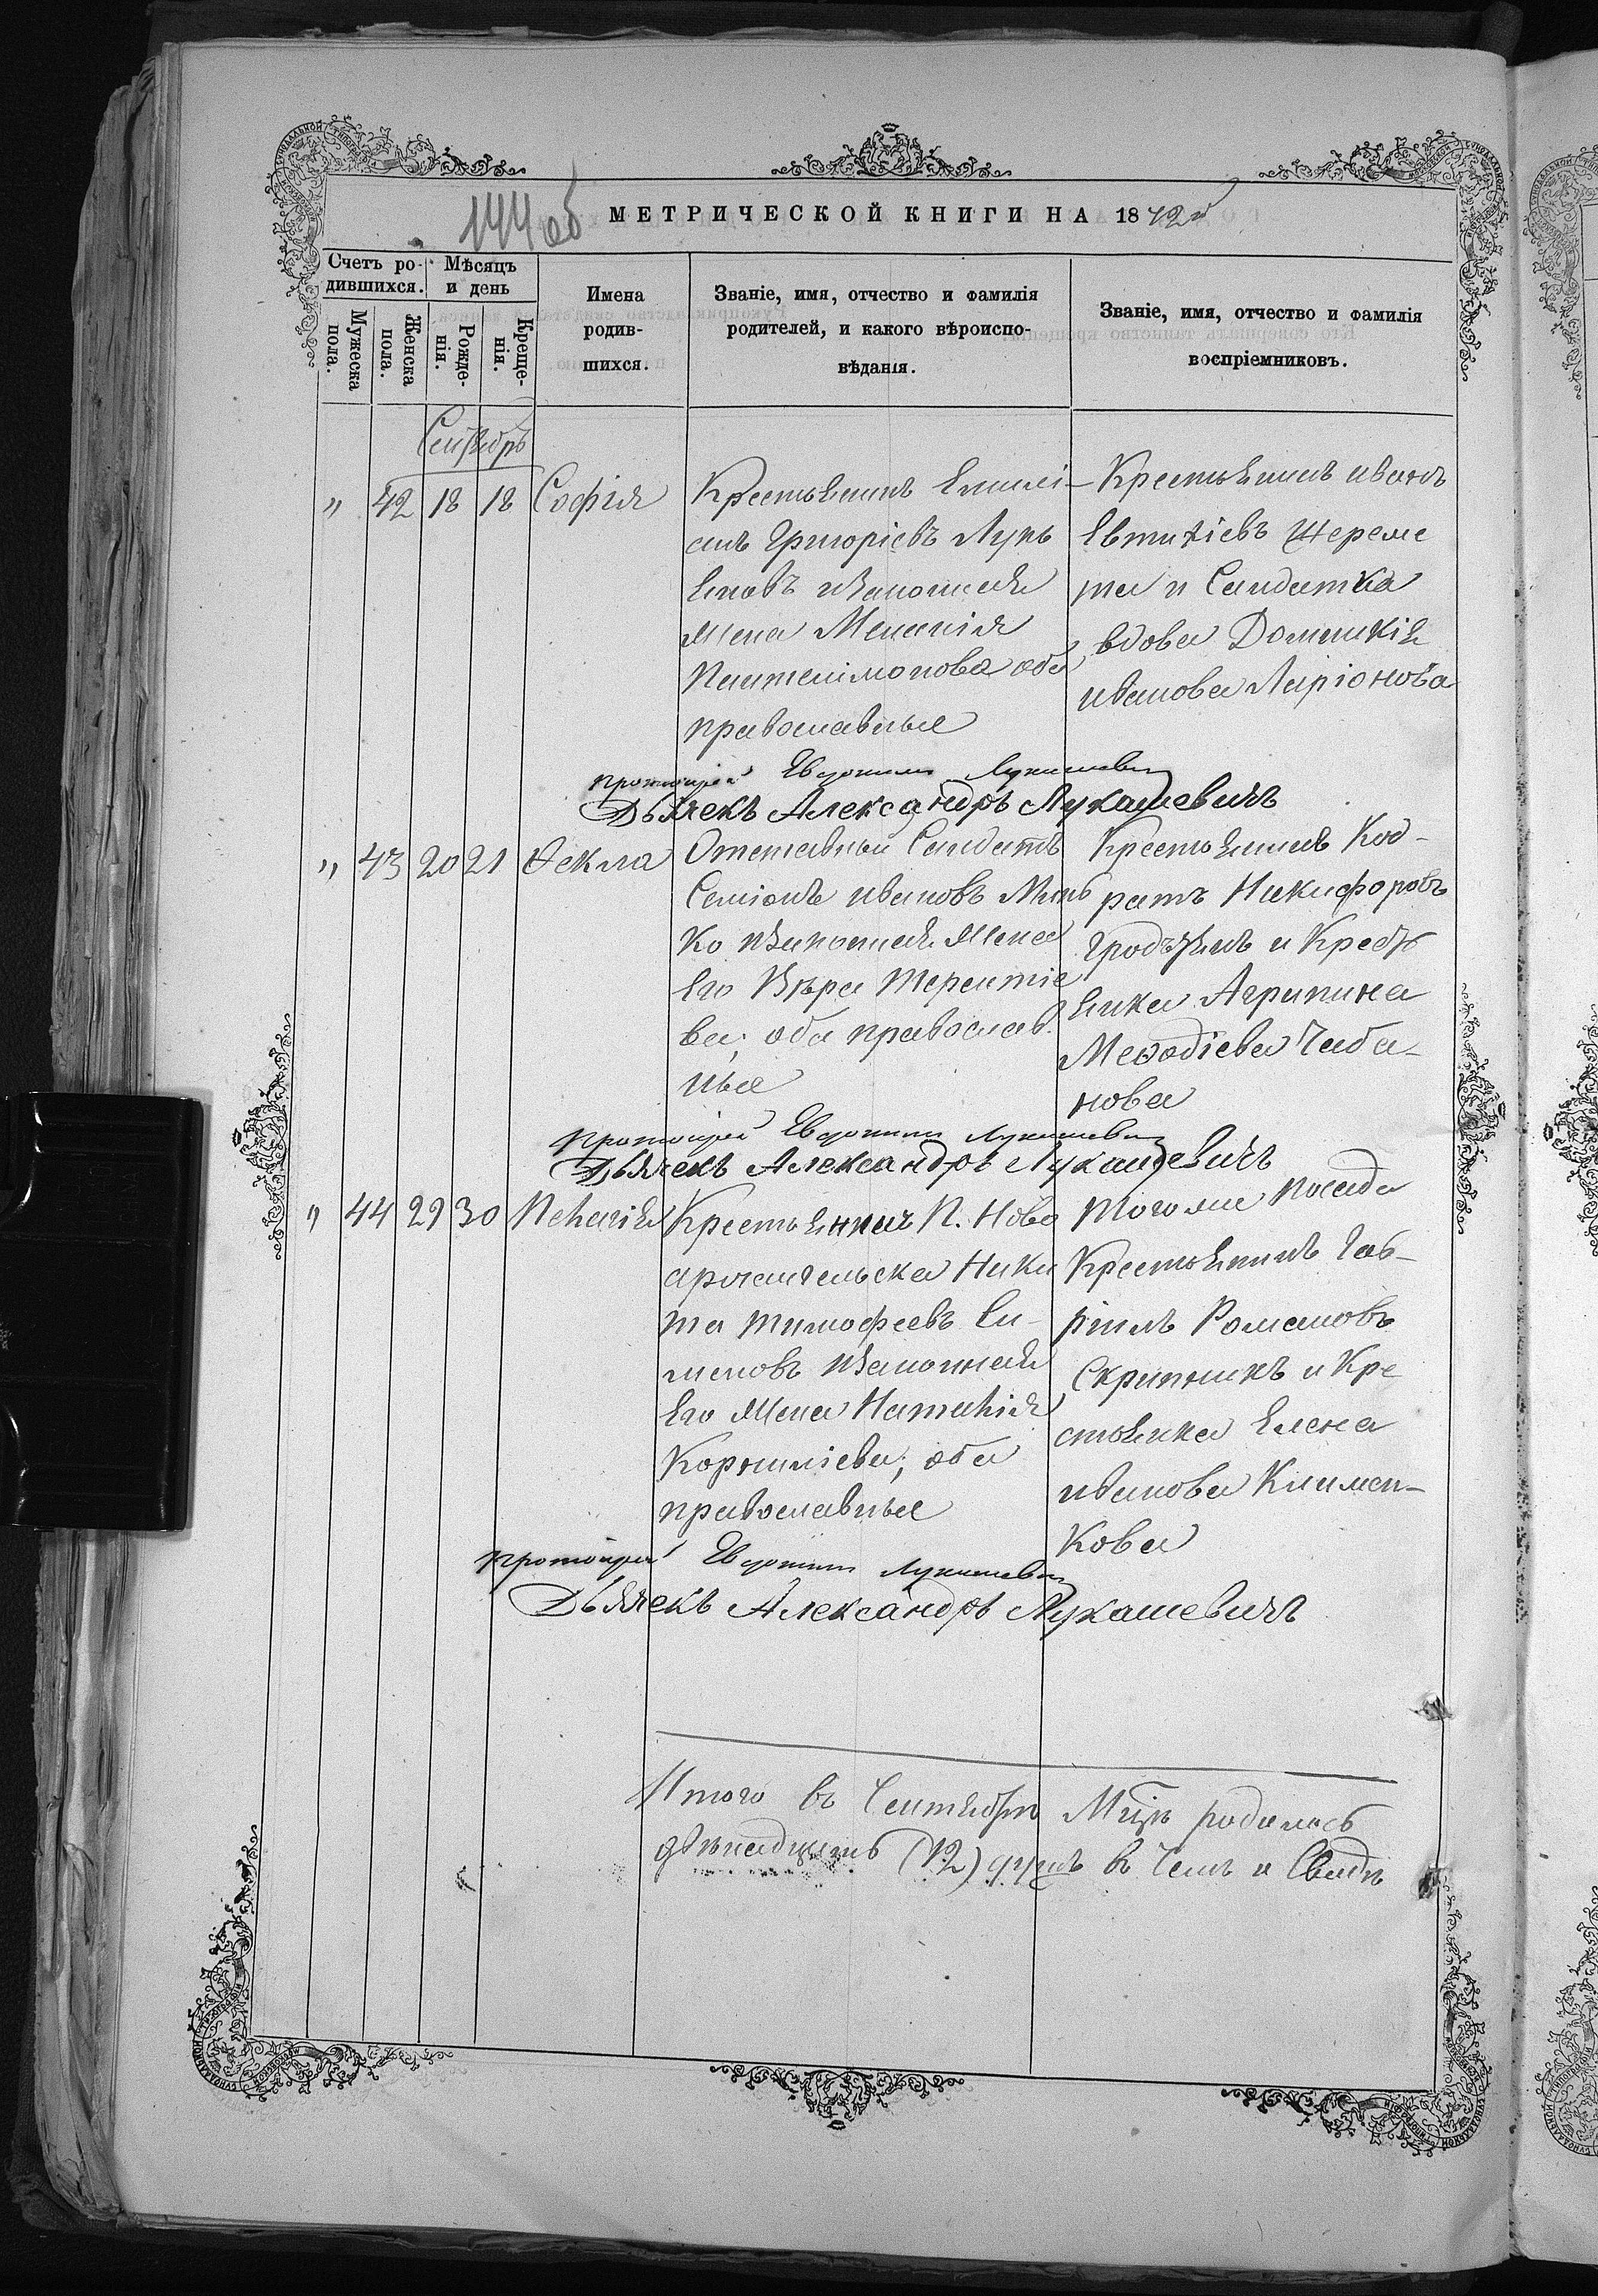 144 об
МЕТРИЧЕСКОЙ КНИГИ НА 1872й
Счетъ ро-
дившихся.
Мѣсяцъ
и день
Мужеска
пола.
Женска
пола.
Рожде-
нія.
Креще-
нія.
Имена
родив-
шихся.
Званіе, имя, отчество и фамилія
родителей, и какого вѣроиспо-
вѣданія.
Званіе, имя, отчество и фамилія
воспріемниковъ.
Сентябрь
" 42 18 18 Софія
Крестьянинъ Емилі-
анъ Григоріевъ Лупь
яновъ изаконная
жена Меланія
Пантелімонова оба
православные
Крестьянинъ иванъ
Евтихіевъ Шереме
та и Салдатка
вдова Домникія
иванова Ларіонова
Протоіерей Евдокимъ Лукашевичъ
Дьячекъ Александръ Лукашевичъ
" 43 20 21 Ѳекла
Отставный Салдатъ
Семіонъ ивановъ Минь
ко изаконная жена
Его Вѣра Терентіе
ва; оба православ
ные
Крестьянинъ Код-
ратъ Никифоровъ
и Кресть
янка Агрипина
Меѳодіева Чаба-
нова
Протоіерей Евдокимъ Лукашевичъ
Дьячекъ Александръ Лукашевичъ
" 44 29 30 Пелагія
Крестьянинъ П. Ново
архангельска Ники
та тимофеевъ Ен-
изаконная
Его жена Наталія
Корниліева; оба
православные
Тогоже посада
Крестьянинъ Гав-
ріилъ Романовъ
Скрипникъ и Кре
стьянка Елена
иванова Климен-
кова
Протоіерей Евдокимъ Лукашевичъ
Дьячекъ Александръ Лукашевичъ
Итого въ Сентябрѣ Мцѣ родилось
двѣнадцать (12) душъ в Чемъ и Свидѣ